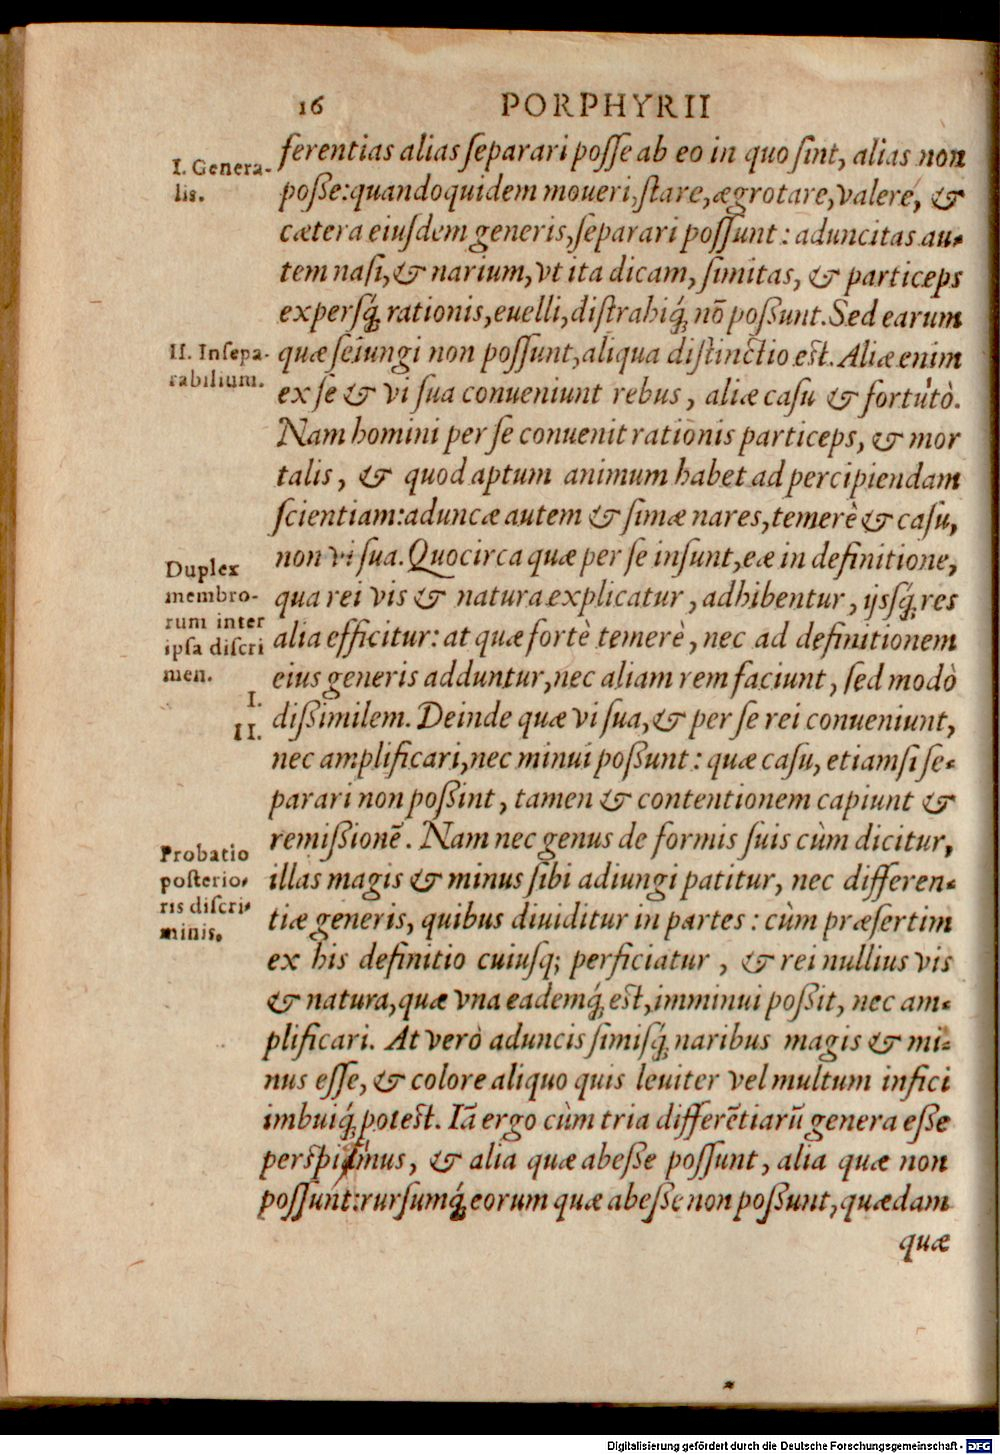 16 PORPHYRII
I. Genera-
lis.
ferentias alias ſeparari poſſe ab eo in quo ſint, alias non
poſſe: quandoquidem moueri, ſtare, ægrotare, valere, &
cætera eiuſdem generis, ſeparari poſſunt: aduncitas au-
tem naſi, & narium, vt ita dicam, ſimitas, & particeps
experſq́ rationis, euelli, diſtrahiq́ nō poſſunt. Sed earum
II. Inſepa-
rabilium.
quæ ſeiungi non poſſunt, aliqua diſtinctio eſt. Aliæ enim
ex ſe & vi ſua conueniunt rebus, aliæ caſu & fortuitò.
Nam homini per ſe conuenit rationis particeps, & mor
talis, & quod aptum animum habet ad percipiendam
ſcientiam: aduncæ autem & ſimæ nares, temerè & caſu,
non vi ſua. Quocirca quæ per ſe inſunt, eæ in definitione,
Duplex
membro-
rum inter
ipſa diſcri
men.
I.
II.
qua rei vis & natura explicatur, adhibentur, ijsq́ res
alia efficitur: at quæ fortè temerè, nec ad definitionem
eius generis adduntur, nec aliam rem faciunt, ſed modò
diſſimilem. Deinde quæ vi ſua, & per ſe rei conueniunt,
nec amplificari, nec minui poſſunt: quæ caſu, etiamſi ſe-
parari non poſſint, tamen & contentionem capiunt &
remiſſionē. Nam nec genus de formis ſuis cùm dicitur,
Probatio
poſterio-
ris diſcri-
minis.
illas magis & minus ſibi adiungi patitur, nec differen-
tiæ generis, quibus diuiditur in partes: cùm præſertim
ex his definitio cuiuſq; perficiatur, & rei nullius vis
& natura, quæ vna eademq́ eſt, imminui poſſit, nec am-
plificari. At verò aduncis ſimiſq́ naribus magis & mi-
nus eſſe, & colore aliquo quis leuiter vel multum infici
imbuiq́ poteſt. Iā ergo cùm tria differētiarū genera eſſe
perſpiciamus, & alia quæ abeſſe poſſunt, alia quæ non
poſſunt: rurſumq́ eorum quæ abeſſe non poſſunt, quædam
quæ
Digitalisierung gefördert durch die Deutsche Forschungsgemeinschaft - DFG